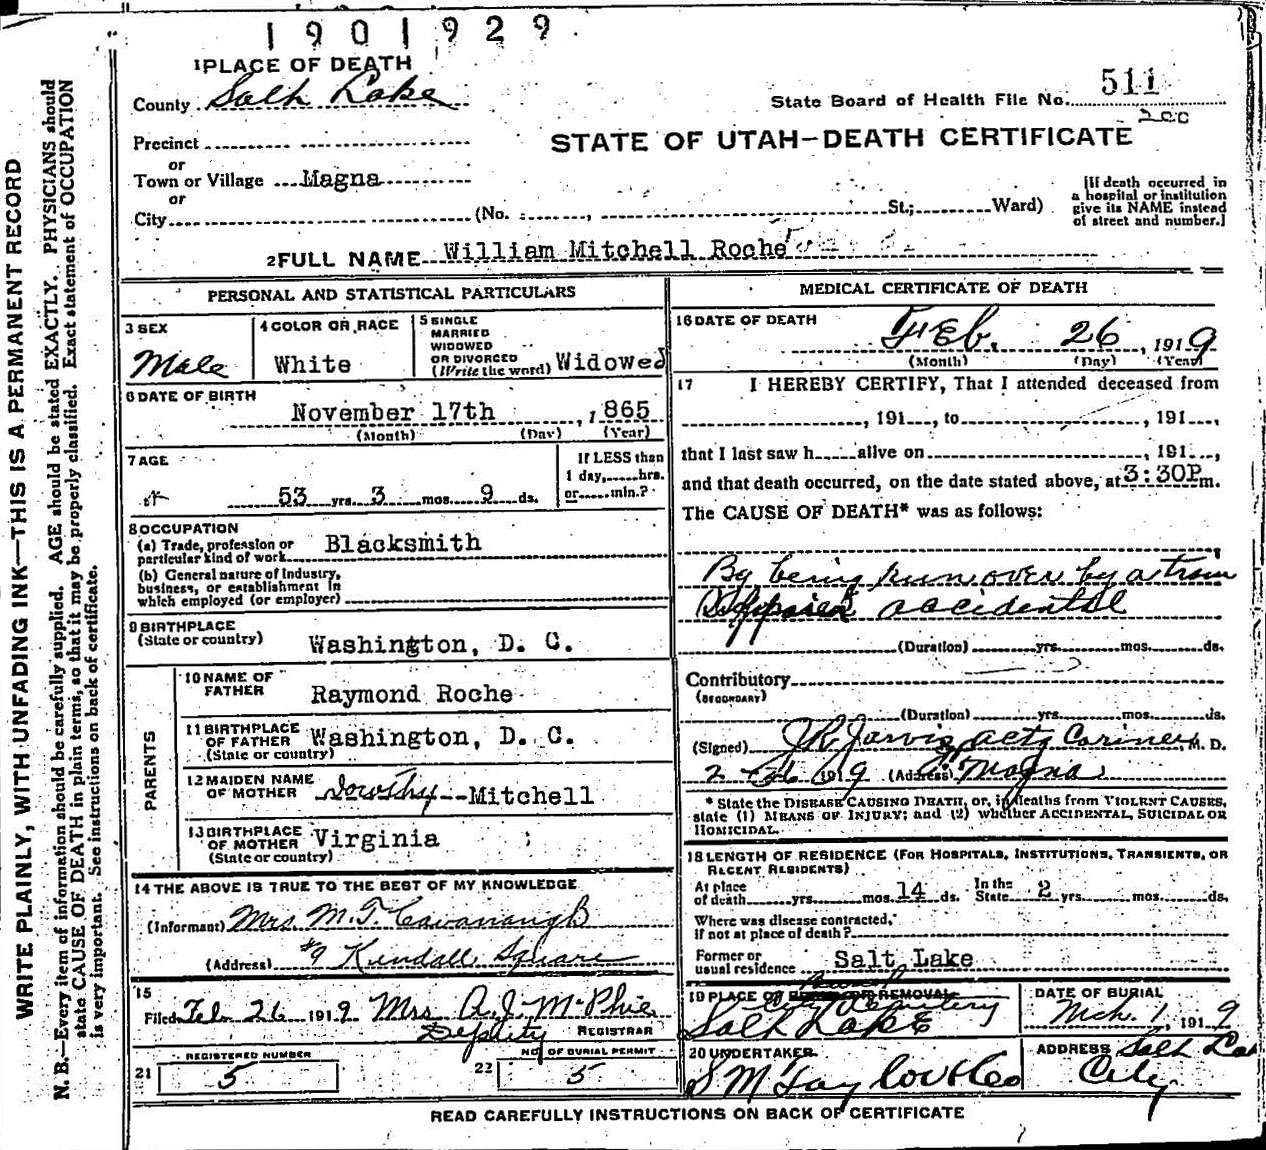 1901929
1 PLACE OF DEATH
County Salt Lake
State Board of Health File No. 511
200
Precinct
STATE OF UTAH—DEATH CERTIFICATE
or
Town or Village Magna
or
City (No. , St.; Ward)
[If death occurred in
a hospital or institution
give its NAME instead
of street and number.]
2 FULL NAME William Mitchell Roche
PERSONAL AND STATISTICAL PARTICULARS
3 SEX
Male
4 COLOR OR RACE
White
5 SINGLE
MARRIED
WIDOWED
OR DIVORCED
(Write the word) Widowed
6 DATE OF BIRTH
November 17th , 1865
(Month) (Day) (Year)
7 AGE
53 yrs. 3 mos. 9 ds.
If LESS than
1 day, hrs.
or min.?
8 OCCUPATION
(a) Trade, profession or
particular kind of work Blacksmith
(b) General nature of Industry,
business, or establishment in
which employed (or employer)
9 BIRTHPLACE
(State or country) Washington, D. C.
PARENTS
10 NAME OF
FATHER Raymond Roche
11 BIRTHPLACE
OF FATHER Washington, D. C.
(State or country)
12 MAIDEN NAME
OF MOTHER Dorothy Mitchell
13 BIRTHPLACE
OF MOTHER Virginia
(State or country)
14 THE ABOVE IS TRUE TO THE BEST OF MY KNOWLEDGE
(Informant) Mrs M. T. Cavanaugh
(Address) #9 Kendall Square
15
Filed Feb 26 1919 Mrs A. J. McPhie
Deputy REGISTRAR
REGISTERED NUMBER
21 5
NO. OF BURIAL PERMIT
22 5
MEDICAL CERTIFICATE OF DEATH
16 DATE OF DEATH
Feb. 26 , 1919
(Month) (Day) (Year)
17 I HEREBY CERTIFY, That I attended deceased from
, 191 , to , 191 ,
that I last saw h alive on , 191 ,
and that death occurred, on the date stated above, at 3:30P m.
The CAUSE OF DEATH* was as follows:
By being run over by a train
accidental
(Duration) yrs. mos. ds.
Contributory
(SECONDARY)
(Duration) yrs. mos. ds.
(Signed) J.R. Jarvis acty Coriner, M. D.
2-26 1919 (Address) Magna
* State the DISEASE CAUSING DEATH, or, in deaths from VIOLENT CAUSES,
state (1) MEANS OF INJURY; and (2) whether ACCIDENTAL, SUICIDAL OR
HOMICIDAL.
18 LENGTH OF RESIDENCE (FOR HOSPITALS, INSTITUTIONS, TRANSIENTS, OR
RECENT RESIDENTS)
At place
of death yrs. mos. 14 ds.
In the
State 2 yrs. mos. ds.
Where was disease contracted,
if not at place of death?
Former or
usual residence Salt Lake
19 PLACE OF BURIAL OR REMOVAL
City Cemetery
Salt Lake
DATE OF BURIAL
Mch. 1, 1919
20 UNDERTAKER
S M Taylor & Co
ADDRESS Salt Lake
City
READ CAREFULLY INSTRUCTIONS ON BACK OF CERTIFICATE
WRITE PLAINLY, WITH UNFADING INK—THIS IS A PERMANENT RECORD
N. B.—Every item of information should be carefully supplied. AGE should be stated EXACTLY. PHYSICIANS should
state CAUSE OF DEATH in plain terms, so that it may be properly classified. Exact statement of OCCUPATION
is very important. See instructions on back of certificate.